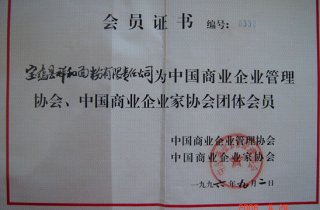 会员证书
编号:0338
宝鸡县祥和面粉有限责任公司为中国商业企业管理
协会、中国商业企业家协会团体会员
中国商业企业管理协会
中国商业企业家协会
一九九六年九月二日